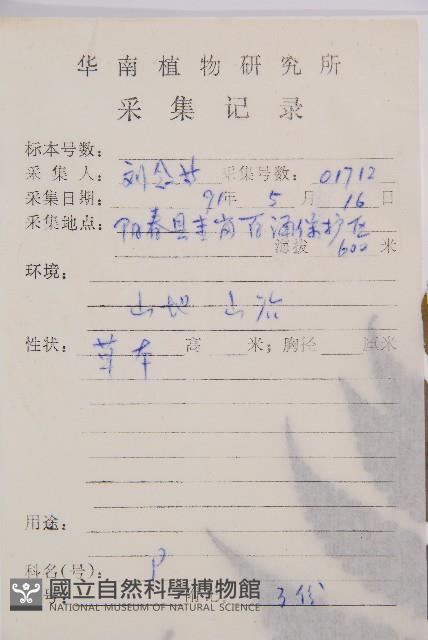 华南植物研究所
采集记录
标本号数：
采集人： 刘念 采集号数： 01712
采集日期： 91年 5 月 16 日
采集地点： 阳春县圭岗百涌保护区
海拔 600 米
环境：
山地 山谷
性状： 草本 高 米；胸径 厘米
用途：
科名(号)： P
附记： 3份
國立自然科學博物館
NATIONAL MUSEUM OF NATURAL SCIENCE